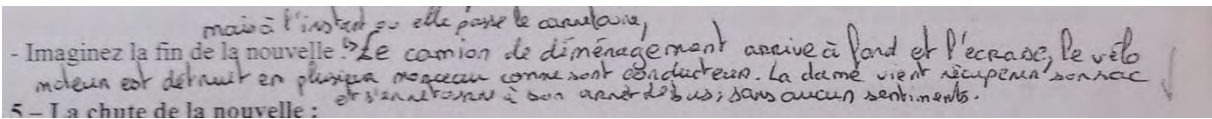 mais à l'instant ou elle passe le carrefour,
- Imaginez la fin de la nouvelle : Le camion de déménagement arrive à fond et l'ecrase, le vélo
moteur est détruit en plusieur morceau comme sont conducteur. La dame vient récuperer son sac
et s'en retourne à son arrêt de bus; sans aucun sentiments.
5 – La chute de la nouvelle :